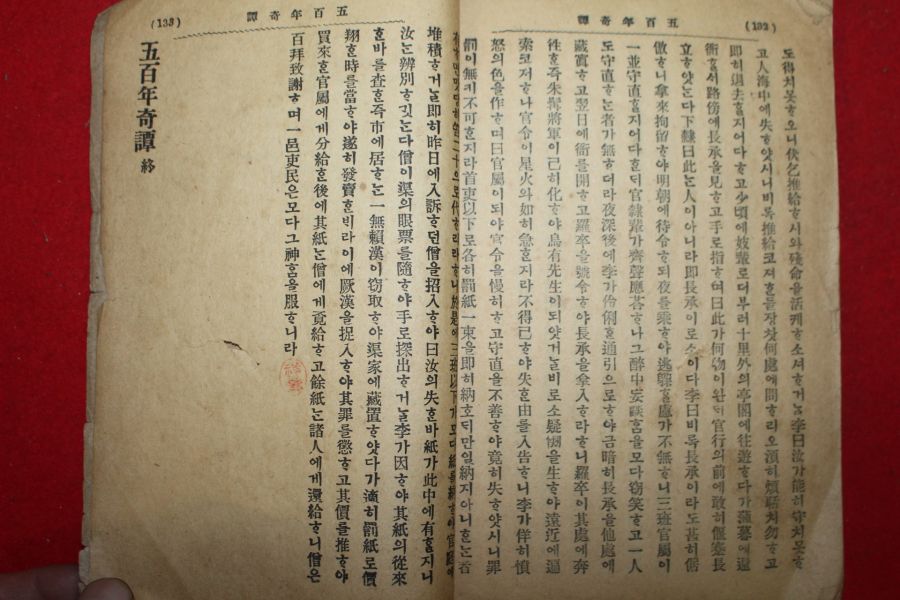 (132) 五百年奇譚
도得치못ᄒᆞ오니伏乞推給ᄒᆞ시와殘命을活케ᄒᆞ소셔ᄒᆞ거ᄂᆞᆯ李曰汝가能히守치못ᄒᆞ
고人海中에失ᄒᆞ얏시니비록推給코져ᄒᆞᆫ들쟝찻何處에問ᄒᆞ리오須히煩聒치勿ᄒᆞ고
即히退去ᄒᆞᆯ지어다ᄒᆞ고少頃에妓輩로더부러十里外의亭閣에往遊ᄒᆞ다가薄暮에還
衙ᄒᆞᆯᄉᆡ路傍에長承을見ᄒᆞ고手로指ᄒᆞ여曰此가何物이완ᄃᆡ官行의前에敢히偃蹇長
立ᄒᆞ얏ᄂᆞᆫ다下隷曰此ᄂᆞᆫ人이아니라即長承이로소이다李曰비록長承이라도甚히倨
傲ᄒᆞ니拿來拘留ᄒᆞ야明朝에待令ᄒᆞ되夜를乘ᄒᆞ야逃躱ᄒᆞᆯ處가不無ᄒᆞ니三班官屬이
一並守直ᄒᆞᆯ지어다ᄒᆞᆫᄃᆡ官隷輩가齊聲應喏ᄒᆞ나그醉中妄談홈을모다窃笑ᄒᆞ고一人
도守直ᄒᆞᄂᆞᆫ者가無ᄒᆞ더라夜深後에李가伶俐ᄒᆞᆫ通引으로ᄒᆞ야금暗히長承을他處에
藏置ᄒᆞ고翌日에衙를開ᄒᆞ고羅卒을號令ᄒᆞ야長承을拿入ᄒᆞ라ᄒᆞ니羅卒이其處에奔
徃ᄒᆞᆫ즉朱髥將軍이已히化ᄒᆞ야烏有先生이되얏거ᄂᆞᆯ비로소疑惻을生ᄒᆞ야遠近에遍
索코져ᄒᆞ나官令이星火와如히急ᄒᆞᆫ지라不得已ᄒᆞ야失ᄒᆞᆫ由를入告ᄒᆞ니李가佯히憤
怒의色을作ᄒᆞ며曰官屬이되야官令을慢히ᄒᆞ고守直을不善ᄒᆞ야竟히失ᄒᆞ얏시니罪
罰이無케不可ᄒᆞᆫ지라首吏以下로各히罰紙一束을即히納ᄒᆞ되만일納지아니ᄒᆞᄂᆞᆫ者
(133) 五百年奇譚
堆積ᄒᆞ거ᄂᆞᆯ即히昨日에入訴ᄒᆞ던僧을招入ᄒᆞ야曰汝의失ᄒᆞᆫ바紙가此中에有ᄒᆞᆯ지니
汝ᄂᆞᆫ辨別ᄒᆞ깃ᄂᆞᆫ다僧이渠의眼票를隨ᄒᆞ야手로探出ᄒᆞ거ᄂᆞᆯ李가因ᄒᆞ야其紙의從來
ᄒᆞᆫ바를查ᄒᆞᆫ즉市에居ᄒᆞᄂᆞᆫ一無賴漢이窃取ᄒᆞ야渠家에藏置ᄒᆞ얏다가適히罰紙로價
翔ᄒᆞᆫ時를當ᄒᆞ야遂히發賣ᄒᆞᆫ비라이에厥漢을捉入ᄒᆞ야其罪를懲ᄒᆞ고其價를推ᄒᆞ야
買來ᄒᆞᆫ官屬에게分給ᄒᆞᆫ後에其紙ᄂᆞᆫ僧에게覓給ᄒᆞ고餘紙ᄂᆞᆫ諸人에게還給ᄒᆞ니僧은
百拜致謝ᄒᆞ며一邑吏民은모다그神홈을服ᄒᆞ니라
五百年奇譚 終